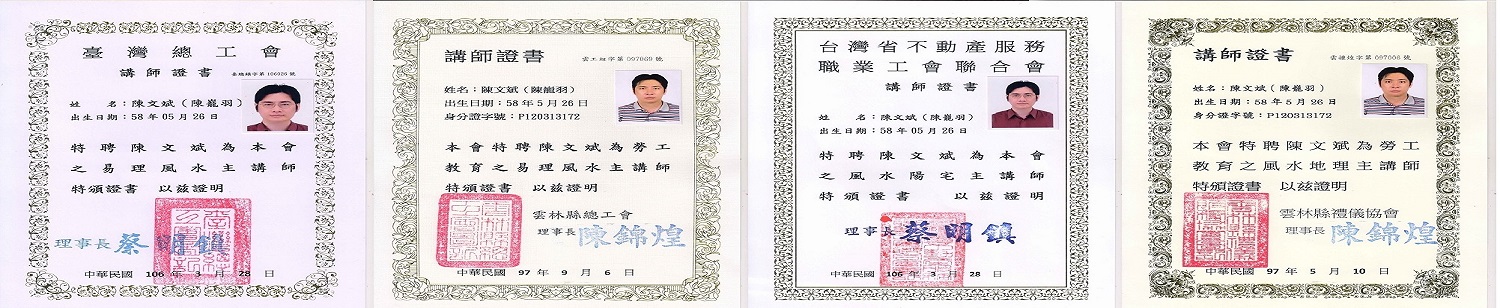 臺灣總工會
講師證書
臺總績字第106026號
姓　名：陳文斌（陳巃羽）
出生日期：58年05月26日
特聘陳文斌為本會
之易理風水主講師
特頒證書　以茲證明
理事長 蔡明鎮
中華民國 106 年 月 28 日
講師證書
雲工組字第097069號
姓名：陳文斌（陳巃羽）
出生日期：58年5月26日
身分證字號：P120313172
本會特聘陳文斌為勞工
教育之易理風水主講師
特頒證書　以茲證明
雲林縣總工會
理事長 陳錦煌
中華民國 97 年 9 月 6 日
台灣省不動產服務
職業工會聯合會
講師證書
姓　名：陳文斌（陳巃羽）
出生日期：58年05月26日
特聘陳文斌為本會
之風水陽宅主講師
特頒證書　以茲證明
理事長 蔡明鎮
中華民國 106 年 3 月 28 日
講師證書
雲禮煌字第097008號
姓名：陳文斌（陳巃羽）
出生日期：58年5月26日
身分證字號：P120313172
本會特聘陳文斌為勞工
教育之風水地理主講師
特頒證書　以茲證明
雲林縣禮儀協會
理事長 陳錦煌
中華民國 97 年 5 月 10 日